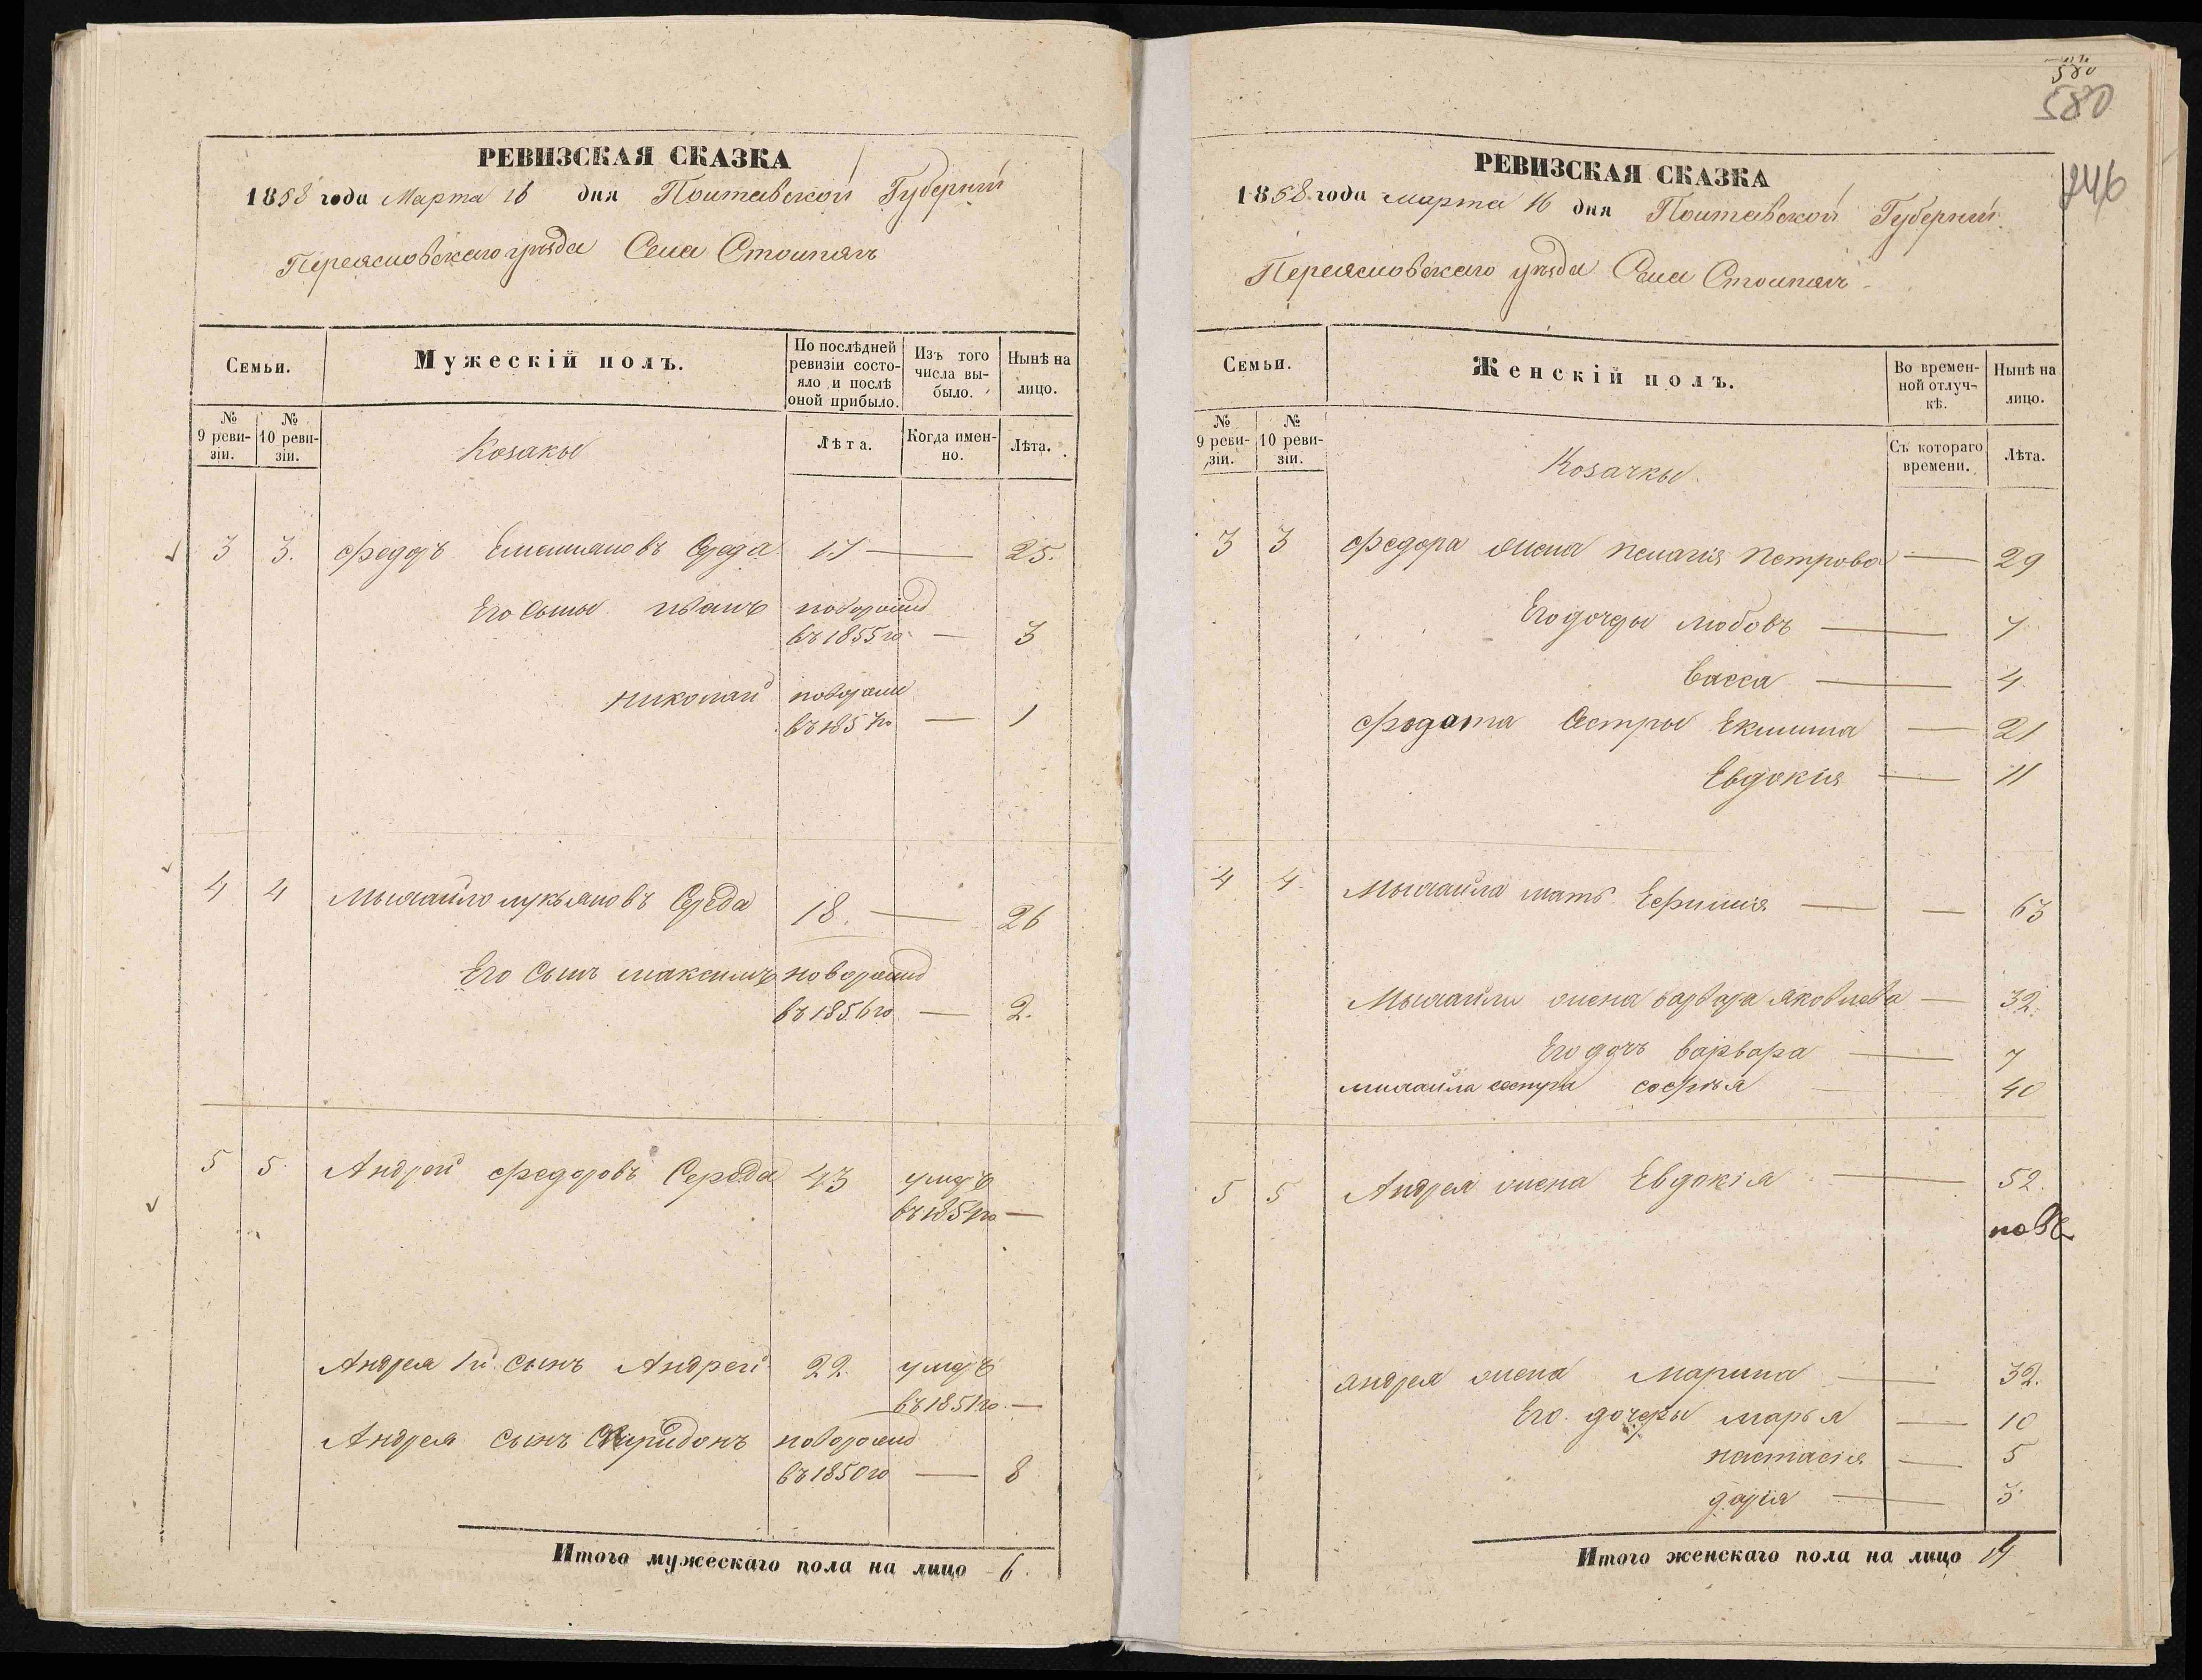 РЕВИЗСКАЯ СКАЗКА
1858 года Марта 16 дня Полтавской Губернии
Переясловскаго уѣзда Села Столпягъ
Семьи.
Мужескій полъ.
По послѣдней ревизіи состояло и послѣ оной прибыло.
Изъ того числа выбыло.
Нынѣ на лицо.
№ 9 ревизіи.
№ 10 ревизіи.
Козакы
Лѣта.
Когда именно.
Лѣта.
3 3. Федоръ Емельяновъ Середа 17 — 25.
Его Сыны Иванъ новорожд
въ 1855 го — 3
Николай новорожд
въ 1857 го — 1
4 4 Мыхайло Лукьяновъ Середа 18. — 26
Его Сынъ Максимъ новорожд
въ 1856 го — 2.
5 5. Андрей Федоровъ Середа 43 умеръ
въ 1854 го —
Андрея 1й сынъ Андрей 22. умеръ
въ 1851 го —
Андрея сынъ Спиридонъ новорожд
въ 1850 го — 8
Итого мужескаго пола на лицо 6.
580
580
246
РЕВИЗСКАЯ СКАЗКА
1858 года марта 16 дня Полтавской Губернии
Переясловскаго уѣзда Села Столпягъ
Семьи.
Женскій полъ.
Во временной отлучкѣ.
Нынѣ на лицо.
№ 9 ревизіи.
№ 10 ревизіи.
Козачкы
Съ котораго времени.
Лѣта.
3 3 Федора жена Пелагія Петрова — 29
Его дочеры Любовъ — 7
Васса — 4
Федота Сестры Екилина — 21
Евдокія — 11
4 4 Мыхайла мать Ефимія — — 63
Мыхайла жена Варвара Яковлева — 32.
Его дочъ Варвара — 7
михайла сестра софъя 40
5 5 Андрея жена Евдокія — 52.
Андрея жена Марина — 32.
Его дочеры Марья — 10
Настасія — 5
Дарія — 3
Итого женскаго пола на лицо 14